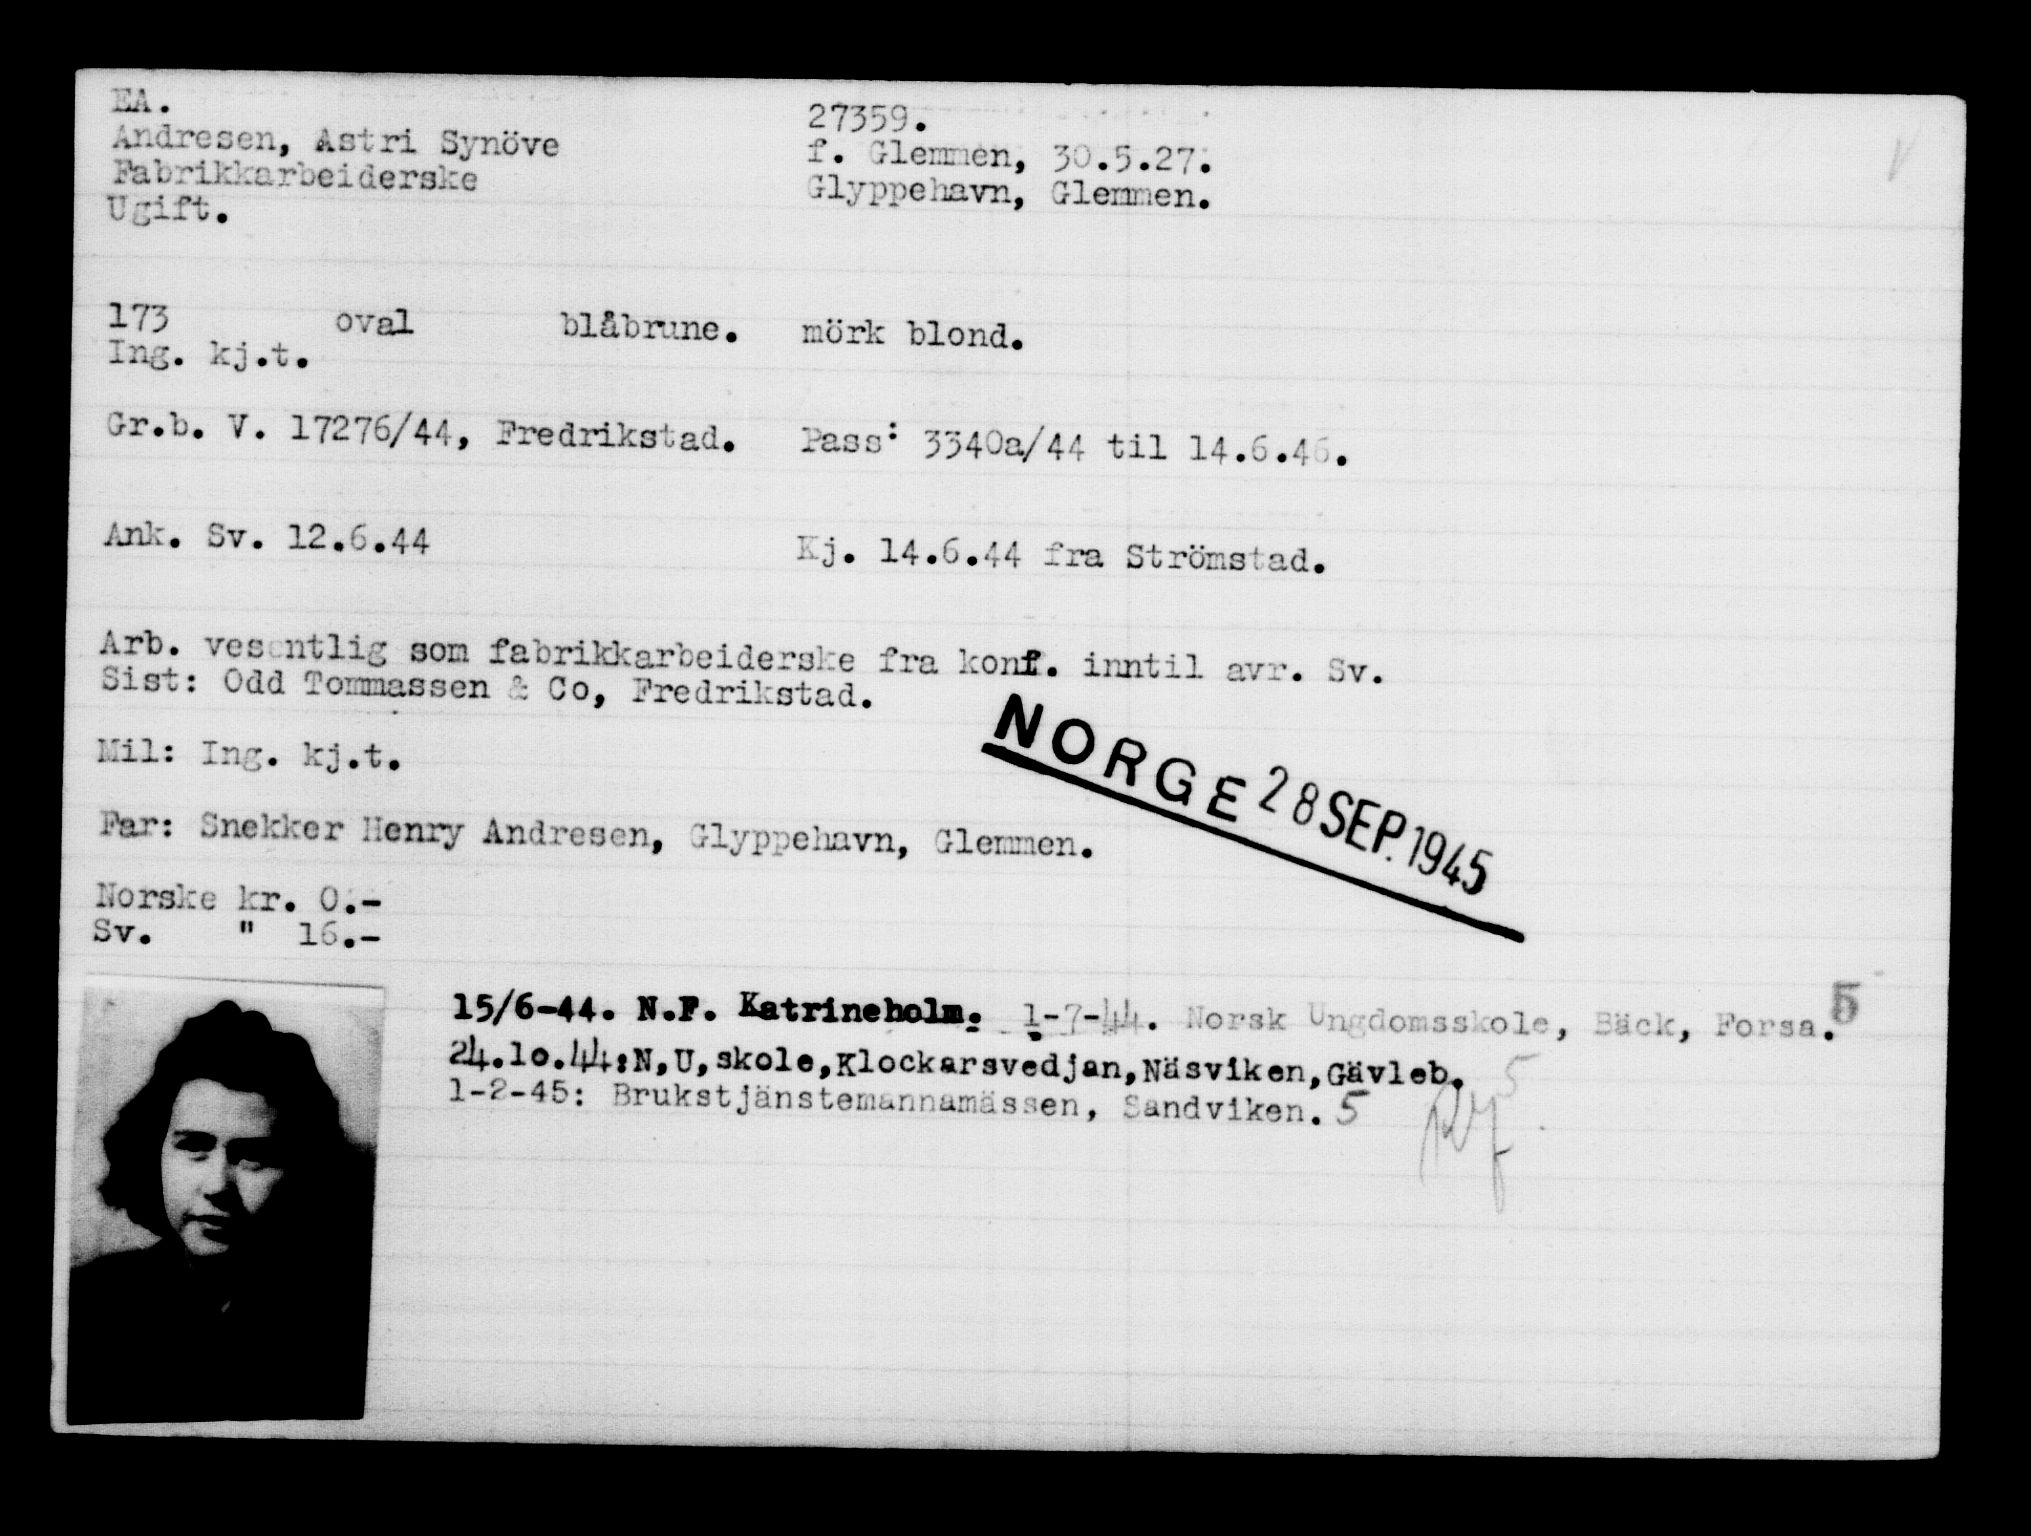 EA.
27359.
Andresen, Astri Synöve
f. Glemmen, 30.5.27.
Fabrikkarbeiderske
Glyppehavn, Glemmen.
Ugift.
173 oval blåbrune. mörk blond.
Ing. kj.t.
Gr.b. V. 17276/44, Fredrikstad. Pass: 3340a/44 til 14.6.46.
Ank. Sv. 12.6.44 Kj. 14.6.44 fra Strömstad.
Arb. vesentlig som fabrikkarbeiderske fra konf. inntil avr. Sv.
Sist: Odd Tommassen & Co, Fredrikstad.
NORGE 28 SEP. 1945
Mil: Ing. kj.t.
Far: Snekker Henry Andresen, Glyppehavn, Glemmen.
Norske kr. 0.-
Sv. " 16.-
15/6-44. N.F. Katrineholm. 1-7-44. Norsk Ungdomsskole, Bäck, Forsa. 5
24.10.44:N,U,skole,Klockarsvedjan,Näsviken,Gävleb.
1-2-45: Brukstjänstemannamässen, Sandviken. 5